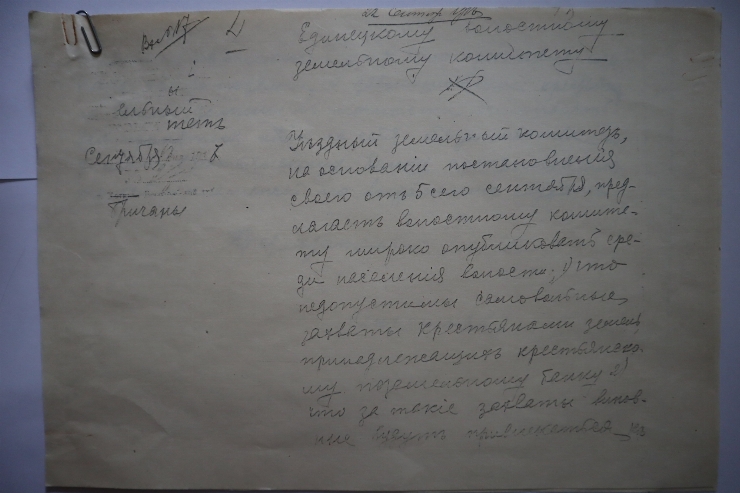 22 Сентяр
Вх. №17
Единецкому волостному
земельному комитету
ельный
тетъ
Сентября 7
Бричаны
Уѣздный земельный комитетъ,
на основаніи постановленія
своего отъ 5 сего сентября, пред-
лагаетъ волостному комите-
ту широко опубликовать сре-
ди населенія волости, 1) что
недопустимы самовольные
захваты крестьянами земель,
принадлежащихъ крестьянско-
му поземельному банку 2)
что за такіе захваты винов-
ные будутъ привлекаться